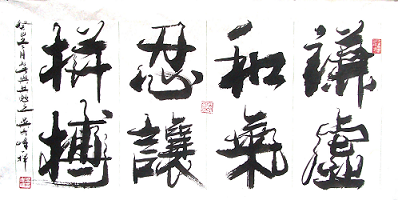 謙虛
和氣
忍讓
拼搏